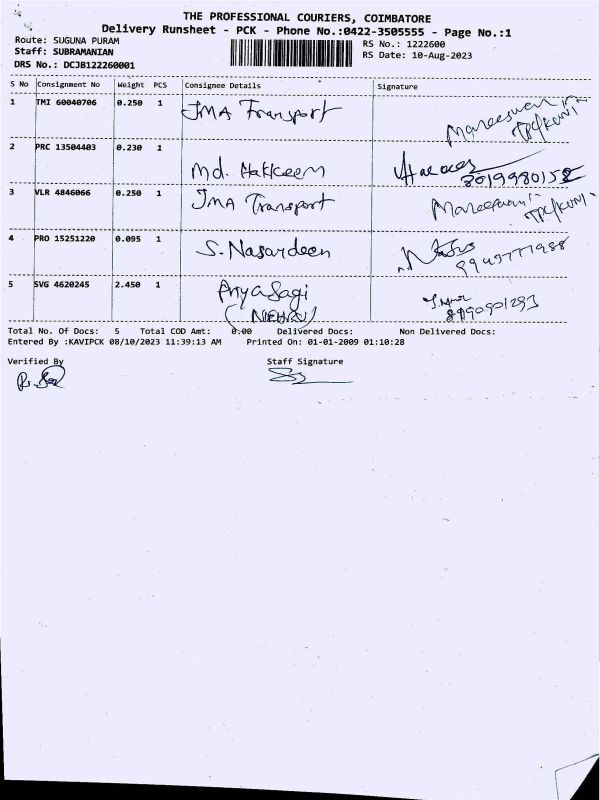 THE PROFESSIONAL COURIERS, COIMBATORE
Delivery Runsheet - PCK - Phone No.:0422-3505555 - Page No.:1
Route: SUGUNA PURAM RS No.: 1222600
Staff: SUBRAMANIAN RS Date: 10-Aug-2023
DRS No.: DCJB122260001
S No Consignment No Weight PCS Consignee Details Signature
1 TMI 60040706 0.250 1 JMA Transport
2 PRC 13504403 0.230 1 Md. Hakkeem
3 VLR 4846066 0.250 1 JMA Transport
4 PRO 15251220 0.095 1 S. Nasardeen
5 SVG 4620245 2.450 1
(NEHRU)
Total No. Of Docs: 5 Total COD Amt: 0.00 Delivered Docs: Non Delivered Docs:
Entered By :KAVIPCK 08/10/2023 11:39:13 AM Printed On: 01-01-2009 01:10:28
Verified By Staff Signature